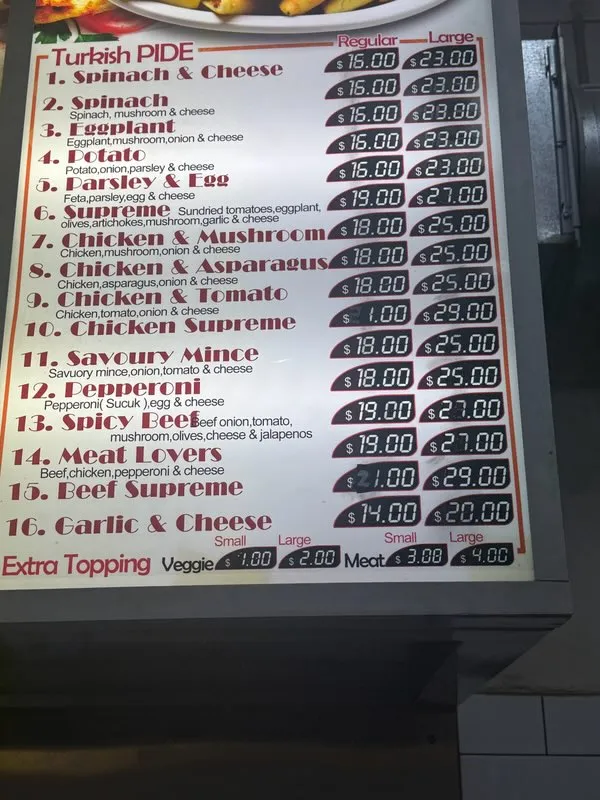 Regular Large
Turkish PIDE
1. Spinach & Cheese $ 16.00 $ 23.00
2. Spinach $ 16.00 $ 23.00
Spinach, mushroom & cheese
3. Eggplant $ 16.00 $ 23.00
Eggplant,mushroom,onion & cheese
4. Potato $ 16.00 $ 23.00
Potato,onion,parsley & cheese
5. Parsley & Egg $ 16.00 $ 23.00
Feta,parsley,egg & cheese
6. Supreme Sundried tomatoes,eggplant, $ 19.00 $ 27.00
olives,artichokes,mushroom,garlic & cheese
7. Chicken & Mushroom $ 18.00 $ 25.00
Chicken,mushroom,onion & cheese
8. Chicken & Asparagus $ 18.00 $ 25.00
Chicken,asparagus,onion & cheese
9. Chicken & Tomato $ 18.00 $ 25.00
Chicken,tomato,onion & cheese
10. Chicken Supreme $ 21.00 $ 29.00
11. Savoury Mince $ 18.00 $ 25.00
Savuory mince,onion,tomato & cheese
12. Pepperoni $ 18.00 $ 25.00
Pepperoni( Sucuk ),egg & cheese
13. Spicy Beef Beef onion,tomato, $ 19.00 $ 27.00
mushroom,olives,cheese & jalapenos
14. Meat Lovers $ 19.00 $ 27.00
Beef,chicken,pepperoni & cheese
15. Beef Supreme $ 21.00 $ 29.00
16. Garlic & Cheese $ 14.00 $ 20.00
Small Large Small Large
Extra Topping Veggie $ 1.00 $ 2.00 Meat $ 3.08 $ 4.00